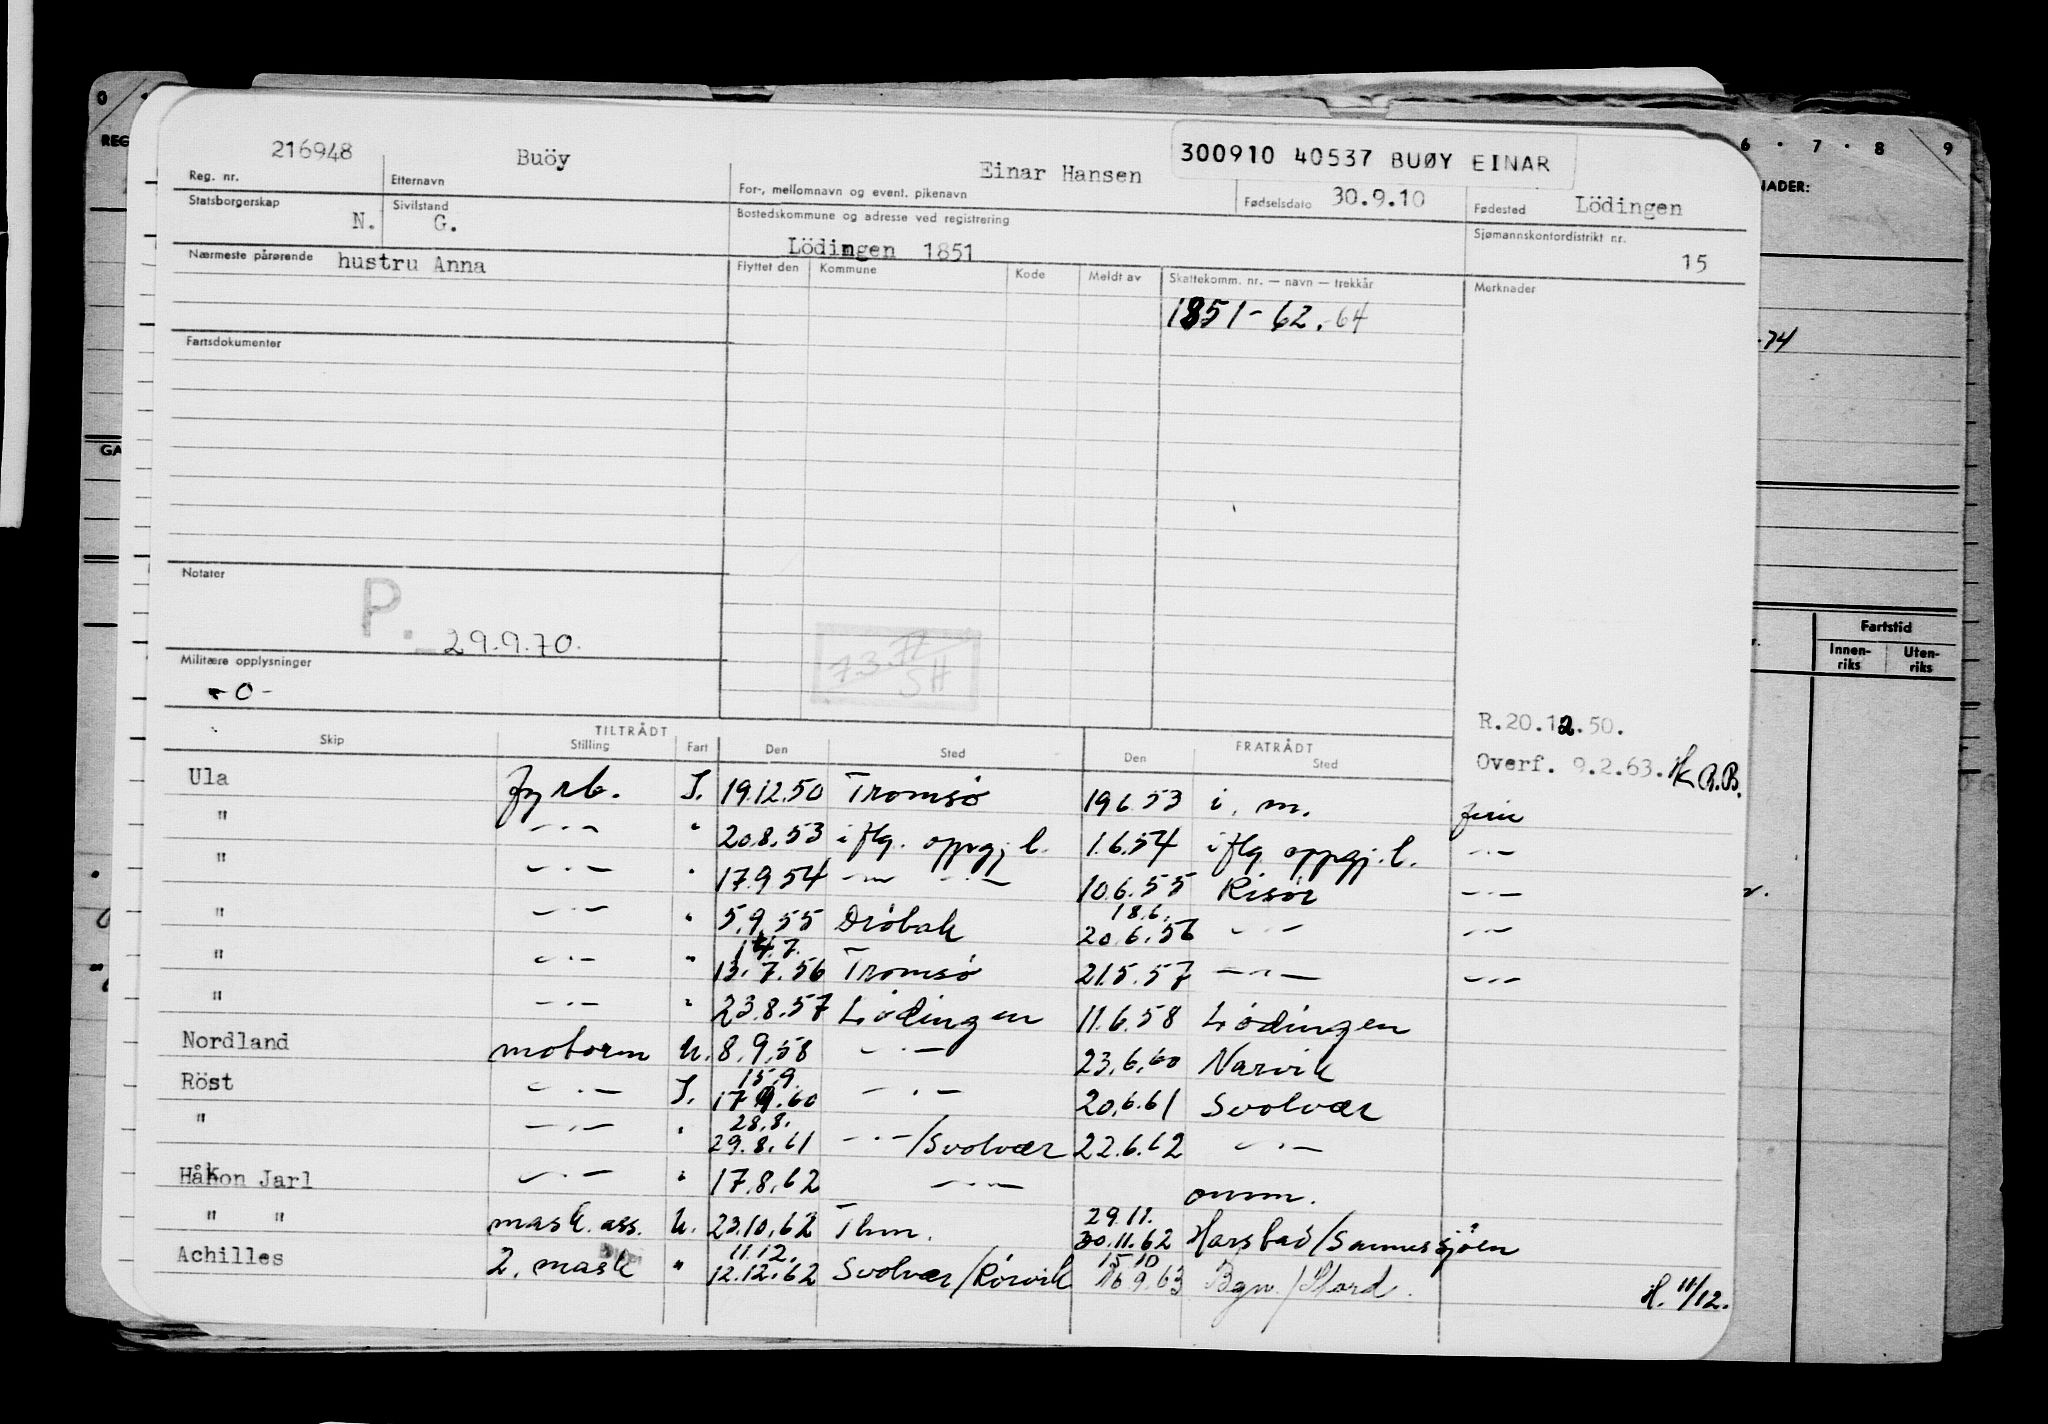 216948 Buöy Einar Hansen 300910 40537 BUØY EINAR
Reg. nr. Etternavn For-, mellomnavn og event. pikenavn Fødselsdato 30.9.10 Fødested Lödingen
Statsborgerskap N. Sivilstand G. Bostedskommune og adresse ved registrering Sjømannskontordistrikt nr.
Lödingen 1851 15
Nærmeste pårørende hustru Anna Flyttet den Kommune Kode Meldt av Skattekomm. nr. — navn — trekkår Merknader
1851-62.-64
Fartsdokumenter
Notater
P. 29.9.70.
7.3.72 SH
Militære opplysninger
-0-
R.20.12.50.
Overf. 9.2.63. Hk R.B.
TILTRÅDT FRATRÅDT
Skip Stilling Fart Den Sted Den Sted
Ula fyrb. I. 19.12.50 Tromsø 19.6.53 i. m. ferie
" —·— " 20.8.53 iflg. oppgj. l. 1.6.54 iflg oppgj. l. —·—
" —·— " 17.9.54 —·— —·— 10.6.55 Risør —·—
" —·— " 5.9.55 Drøbak 18.6. 20.6.56 —·— —·—
" —·— " 14.7. 13.7.56 Tromsø 21.5.57 —·— —·—
" —·— " 23.8.57 Lødingen 11.6.58 Lødingen
Nordland motorm U. 8.9.58 —·— 23.6.60 Narvik
Röst —·— I. 15.9. 17.9.60 —·— 20.6.61 Svolvær
" —·— " 28.8. 29.8.61 —·—/Svolvær 22.6.62 —·—
Håkon Jarl —·— " 17.8.62 —·— omm.
" " mask. ass. U. 23.10.62 Thm. 29.11. 30.11.62 Harstad/Sannessjøen
Achilles 2. mask " 11.12. 12.12.62 Svolvær/Rørvik 15 10 16 9.63 Bgn./Stord.
H. 11/12.
0
REG
GA
6 · 7 · 8 9
NADER:
-74
Fartstid
Innen-riks Uten-riks